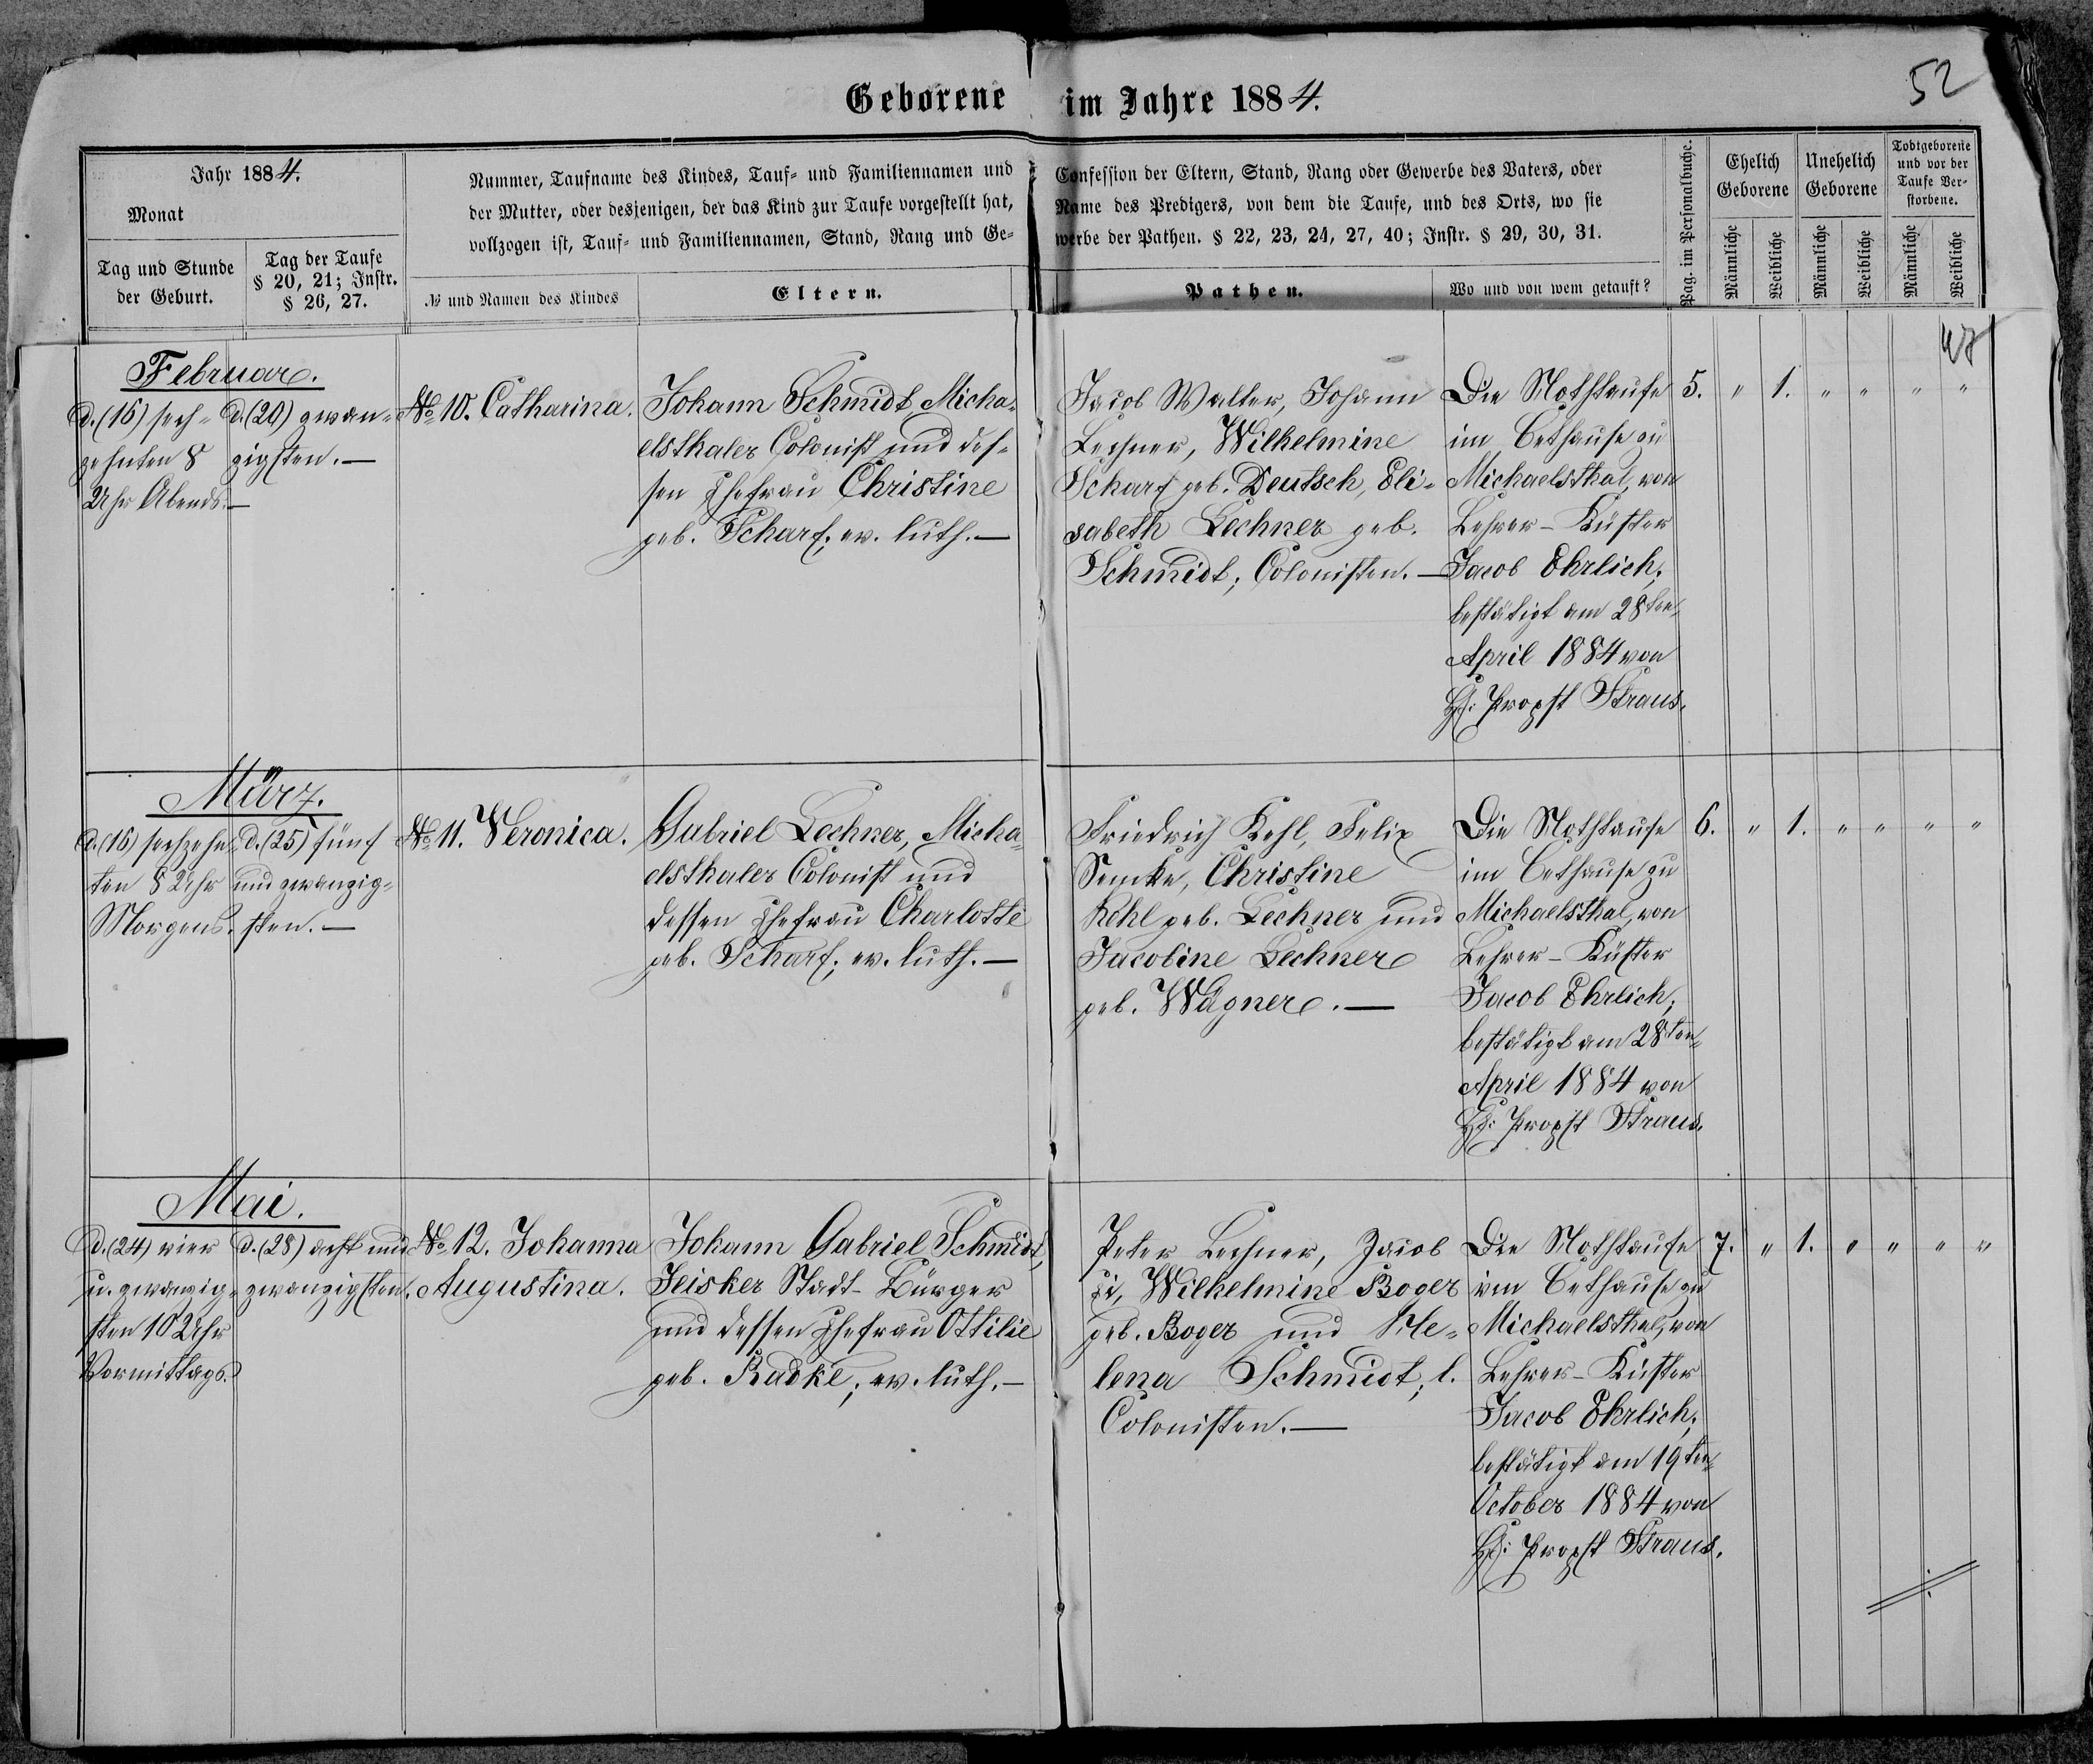 Geborene im Jahre 1884.
52
Jahr 1884.
Monat
Tag und Stunde
der Geburt.
Tag der Taufe
§ 20, 21; Instr.
§ 26, 27.
Nummer, Taufname des Kindes, Tauf- und Familiennamen und
der Mutter, oder desjenigen, der das Kind zur Taufe vorgestellt hat,
vollzogen ist, Tauf- und Familiennamen, Stand, Rang und Ge-
№ und Namen des Kindes
Eltern.
Confession der Eltern, Stand, Rang oder Gewerbe des Vaters, oder
Name des Predigers, von dem die Taufe, und des Orts, wo sie
werbe der Pathen. § 22, 23, 24, 27, 40; Instr. § 29, 30, 31.
Pathen.
Wo und von wem getauft?
Pag. im Personalbuche.
Ehelich
Geborene
Unehelich
Geborene
Todtgeborene
und vor der
Taufe Ver-
storbene.
Männliche
Weibliche
Männliche
Weibliche
Männliche
Weibliche
Februar.
d. (16) sech-
zehnten 8
Uhr Abends. —
d. (20) zwan-
zigsten. —
№ 10. Catharina.
Johann Schmidt, Micha-
elsthaler Colonist und des-
sen Ehefrau Christine
geb. Scharf; ev. luth. —
Jacob Walter, Johann
Lechner, Wilhelmine
Scharf geb. Deutsch, Eli-
sabeth Lechner geb.
Schmidt; Colonisten. —
Die Nothtaufe
im Bethause zu
Michaelsthal, von
Lehrer-Küster
Jacob Ehrlich;
bestätigt am 28ten
April 1884 von
H: Propst Straus.
5. " 1. " " " "
März.
d. (16) sechzehn-
ten 8 Uhr
Morgens.
d. (25) fünf
und zwanzig-
sten. —
№ 11. Veronica.
Gabriel Lechner, Micha-
elsthaler Colonist und
dessen Ehefrau Charlotte
geb. Scharf; ev. luth. —
Friedrich Kehl, Felix
Semke, Christine
Kehl geb. Lechner und
Jacobine Lechner
geb. Wagner. —
Die Nothtaufe
im Bethause zu
Michaelsthal, von
Lehrer-Küster
Jacob Ehrlich;
bestätigt am 28ten
April 1884 von
H: Propst Straus.
6. " 1. " " " "
Mai.
d. (24) vier
u. zwanzig-
sten 10 Uhr
Vormittags.
d. (28) acht und
zwanzigsten.
№ 12. Johanna
Augustina.
Johann Gabriel Schmidt,
Jeisker Stadt-Bürger
und dessen Ehefrau Ottilie
geb. Radke; ev. luth. —
Peter Lechner, Jacob
Wilhelmine Boger
geb. Boger und He-
lena Schmidt, l.
Colonisten. —
Die Nothtaufe
im Bethause zu
Michaelsthal, von
Lehrer-Küster
Jacob Ehrlich;
bestätigt am 19ten
October 1884 von
H: Propst Straus.
7. " 1. " " " "